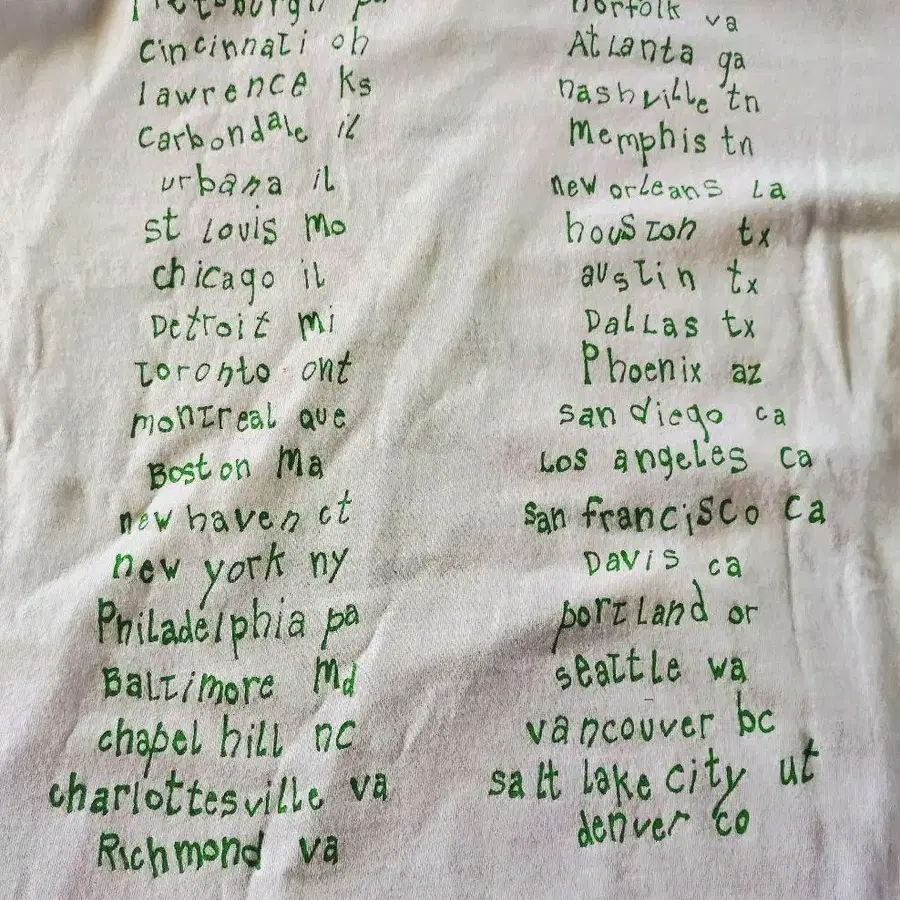 Pittsburgh pa
cincinnati oh
lawrence ks
carbondale il
urbana il
st Louis Mo
chicago il
Detroit mi
toronto ont
montreal que
Boston Ma
new haven ct
new york ny
PhiLadelphia pa
BaLtimore Md
chapel hill nc
charlottesville va
Richmond va
norfolk va
AtLanta ga
nashviLLe tn
Memphis tn
new orLeans La
houSton tx
auStin tx
DaLLas tx
Phoenix az
san diego ca
Los angeLes ca
san francisco ca
Davis ca
portLand or
seattLe wa
vancouver bc
salt lake city ut
denver co